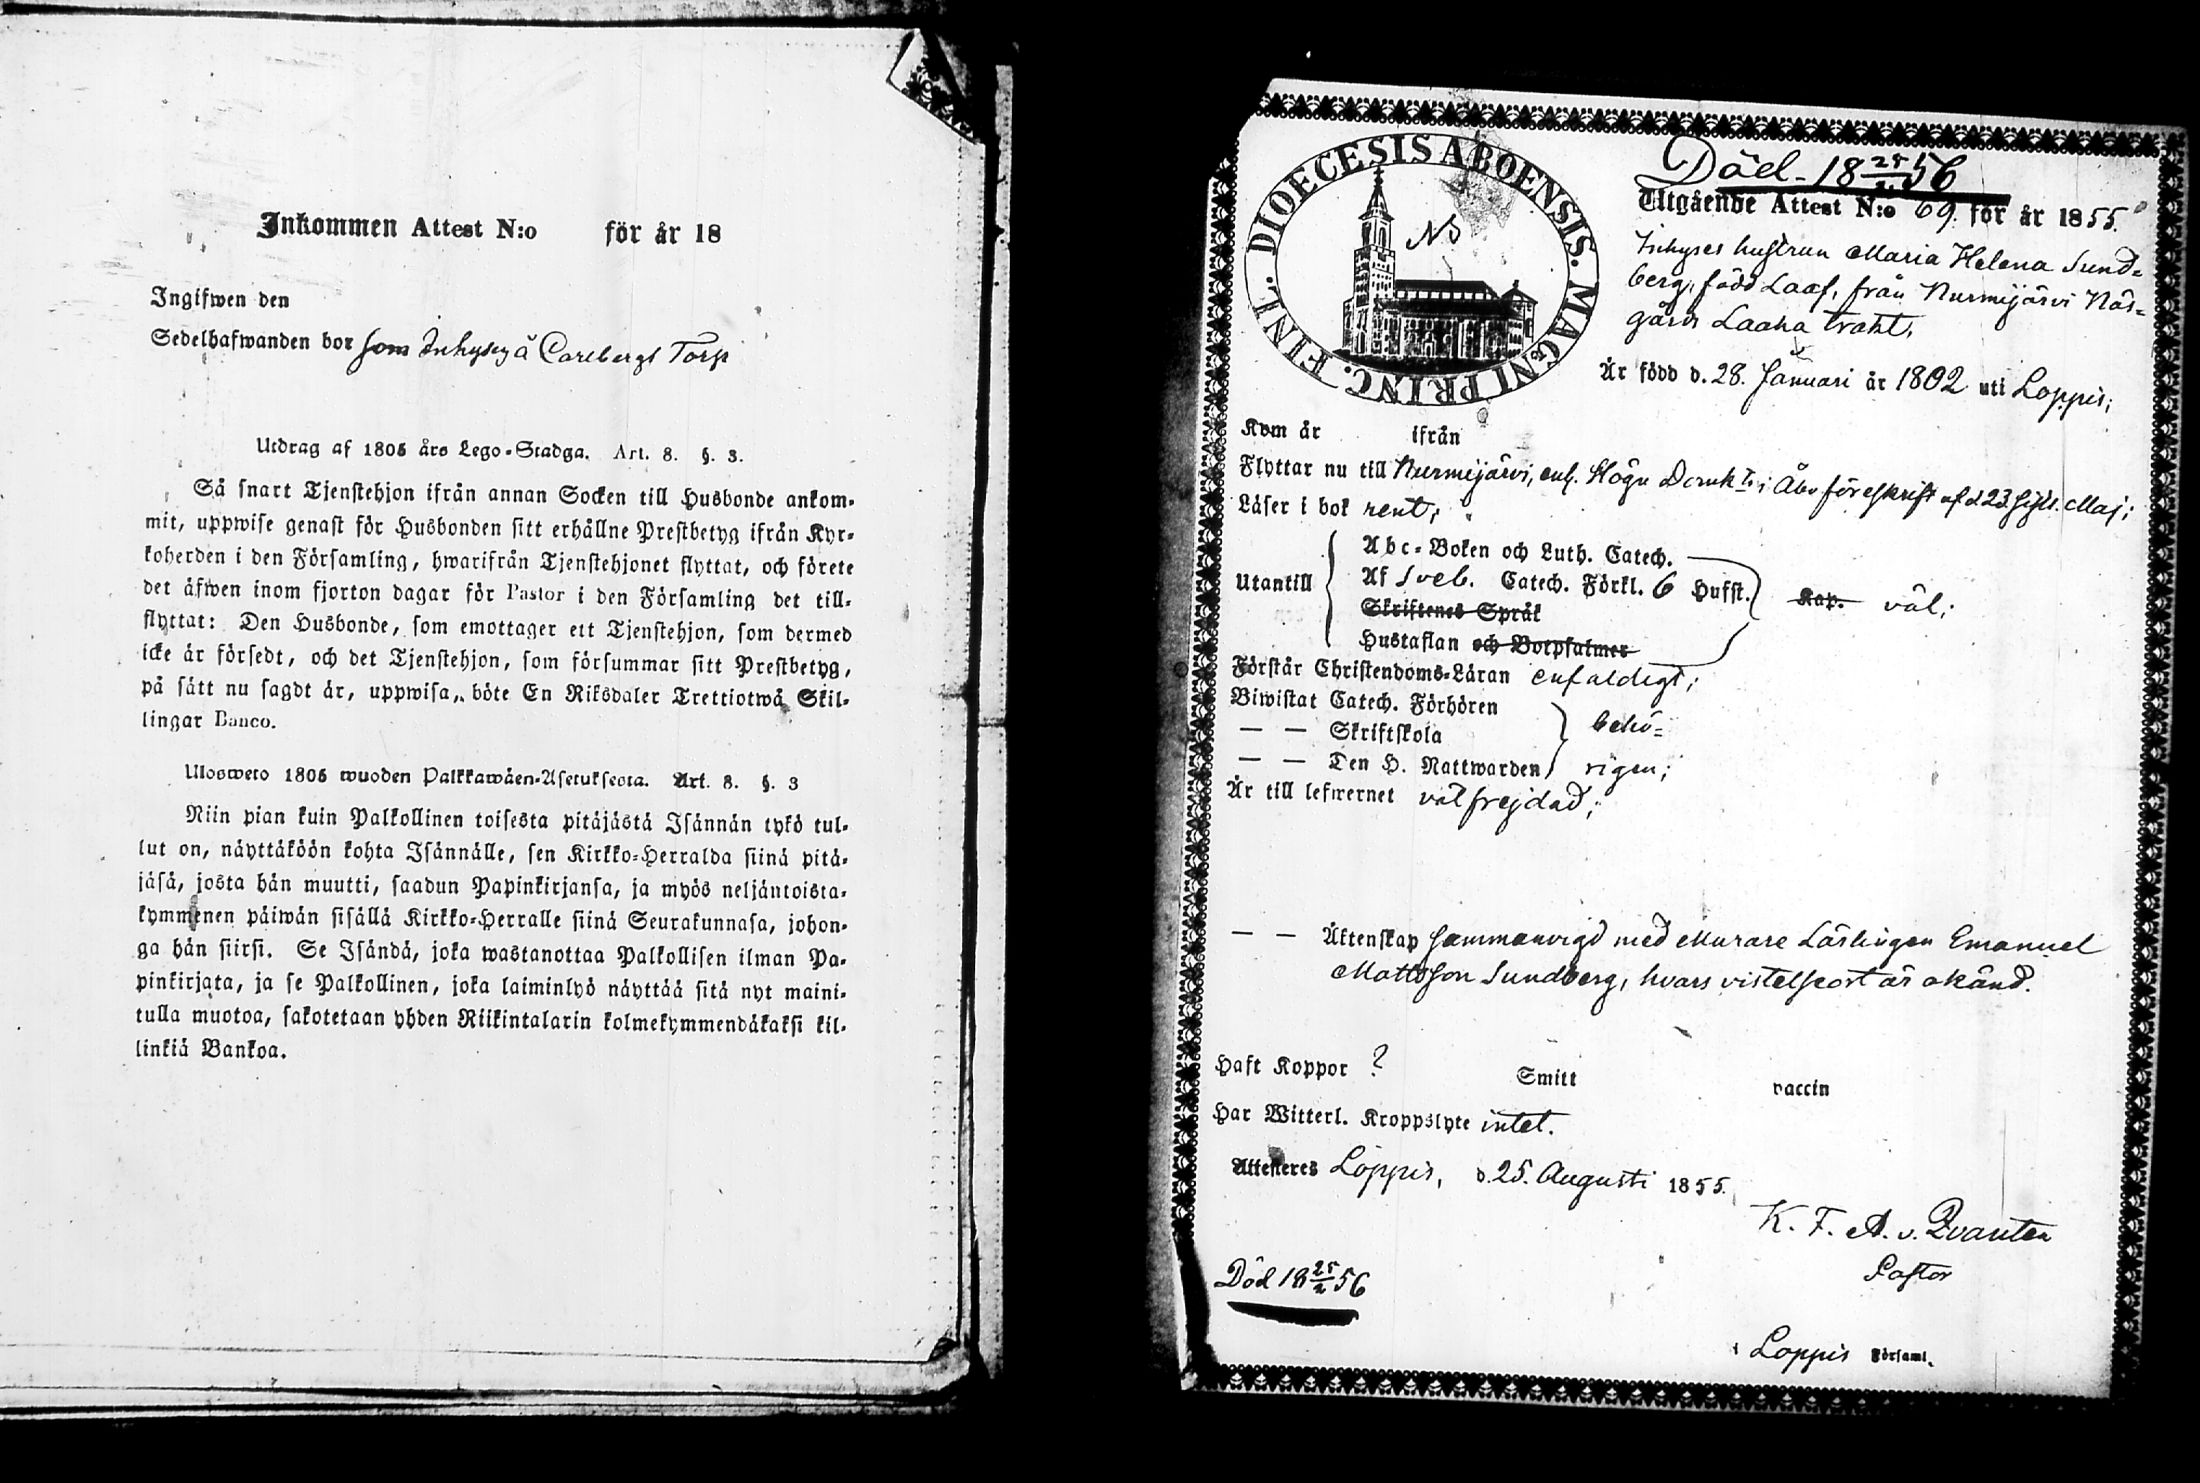 Inkommen Attest N:o för år 18
Ingifwen den
Sedelhafwanden bor som Inhyses å Carlbergs Torp
Utdrag af 1805 års Lego-Stadga. Art. 8. §. 3.
Så snart Tjenstehjon ifrån annan Socken till Husbonde ankom-
mit, uppwise genast för Husbonden sitt erhållne Prestbetyg ifrån Kyr-
koherden i den Församling, hwarifrån Tjenstehjonet flyttat, och förete
det äfwen inom fjorton dagar för Pastor i den Församling det till-
flyttat: Den Husbonde, som emottager ett Tjenstehjon, som dermed
icke är försedt, och det Tjenstehjon, som försummar sitt Prestbetyg,
på sätt nu sagdt är, uppwisa, böte En Riksdaler Trettiotwå Skil-
lingar Banco.
Ulosweto 1805 wuoden Palkkawäen-Asetuksesta. Art. 8. §. 3
Niin pian kuin Palkollinen toisesta pitäjästä Isännän tykö tul-
lut on, näyttäköön kohta Isännälle, sen Kirkko-Herralda siinä pitä-
jäsä, josta hän muutti, saadun Papinkirjansa, ja myös neljäntoista-
kymmenen päiwän sisällä Kirkko-Herralle siinä Seurakunnasa, johon-
ga hän siirsi. Se Isändä, joka wastanottaa Palkollisen ilman Pa-
pinkirjata, ja se Palkollinen, joka laiminlyö näyttää sitä nyt maini-
tulla muotoa, sakotetaan yhden Riikintalarin kolmekymmendäkaksi kil-
linkiä Bankoa.
DIOECESIS ABOENSIS. MAGNI PRINC. FINL.
Död 18 25/2 56
Utgående Attest N:o 69. för år 1855.
Inhyses hustrun Maria Helena Sund-
berg, född Laaf, från Nurmijärvi Näs-
gårds Laaha trakt,
Är född d. 28. Januari år 1802 uti Loppis;
Kom år ifrån
Flyttar nu till Nurmijärvi, enl. Högv. Domk:ts i Åbo föreskrift af d 23 sistl. Maj;
Läser i bok rent;
Utantill
Abc-Boken och Luth. Catech.
Af Sveb. Catech. Förkl. 6 Hufst. Kap. väl;
Skriftenes Språk
Hustaflan och Botpsalmer
Förstår Christendoms-Läran enfaldigt;
Biwistat Catech. Förhören
— — Skriftskola behö-
— — Den H. Nattwarden rigen;
Är till lefwernet välfrejdad;
— — Äktenskap sammanvigd med Murare Lärlingen Emanuel
Mattsson Sundberg, hvars vistelseort är okänd.
Haft Koppor ? Smitt vaccin
Har Witterl. Kroppslyte intet.
Attesteres Loppis, d. 25. Augusti 1855.
K. F. A. v. Qvanten
Pastor
Död 18 25/2 56
i Loppis Församl.